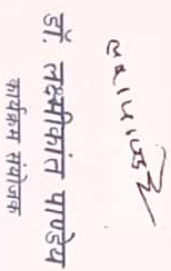 डॉ. लक्ष्मीकांत पाण्डेय
कार्यक्रम संयोजक